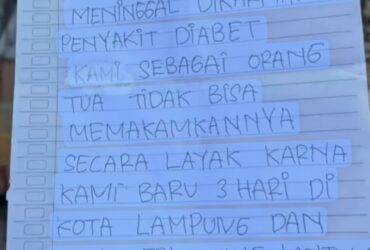 MENINGGAL
PENYAKIT DIABET
KAMI SEBAGAI ORANG
TUA TIDAK BISA
MEMAKAMKANNYA
SECARA LAYAK KARNA
KAMI BARU 3 HARI DI
KOTA LAMPUNG DAN